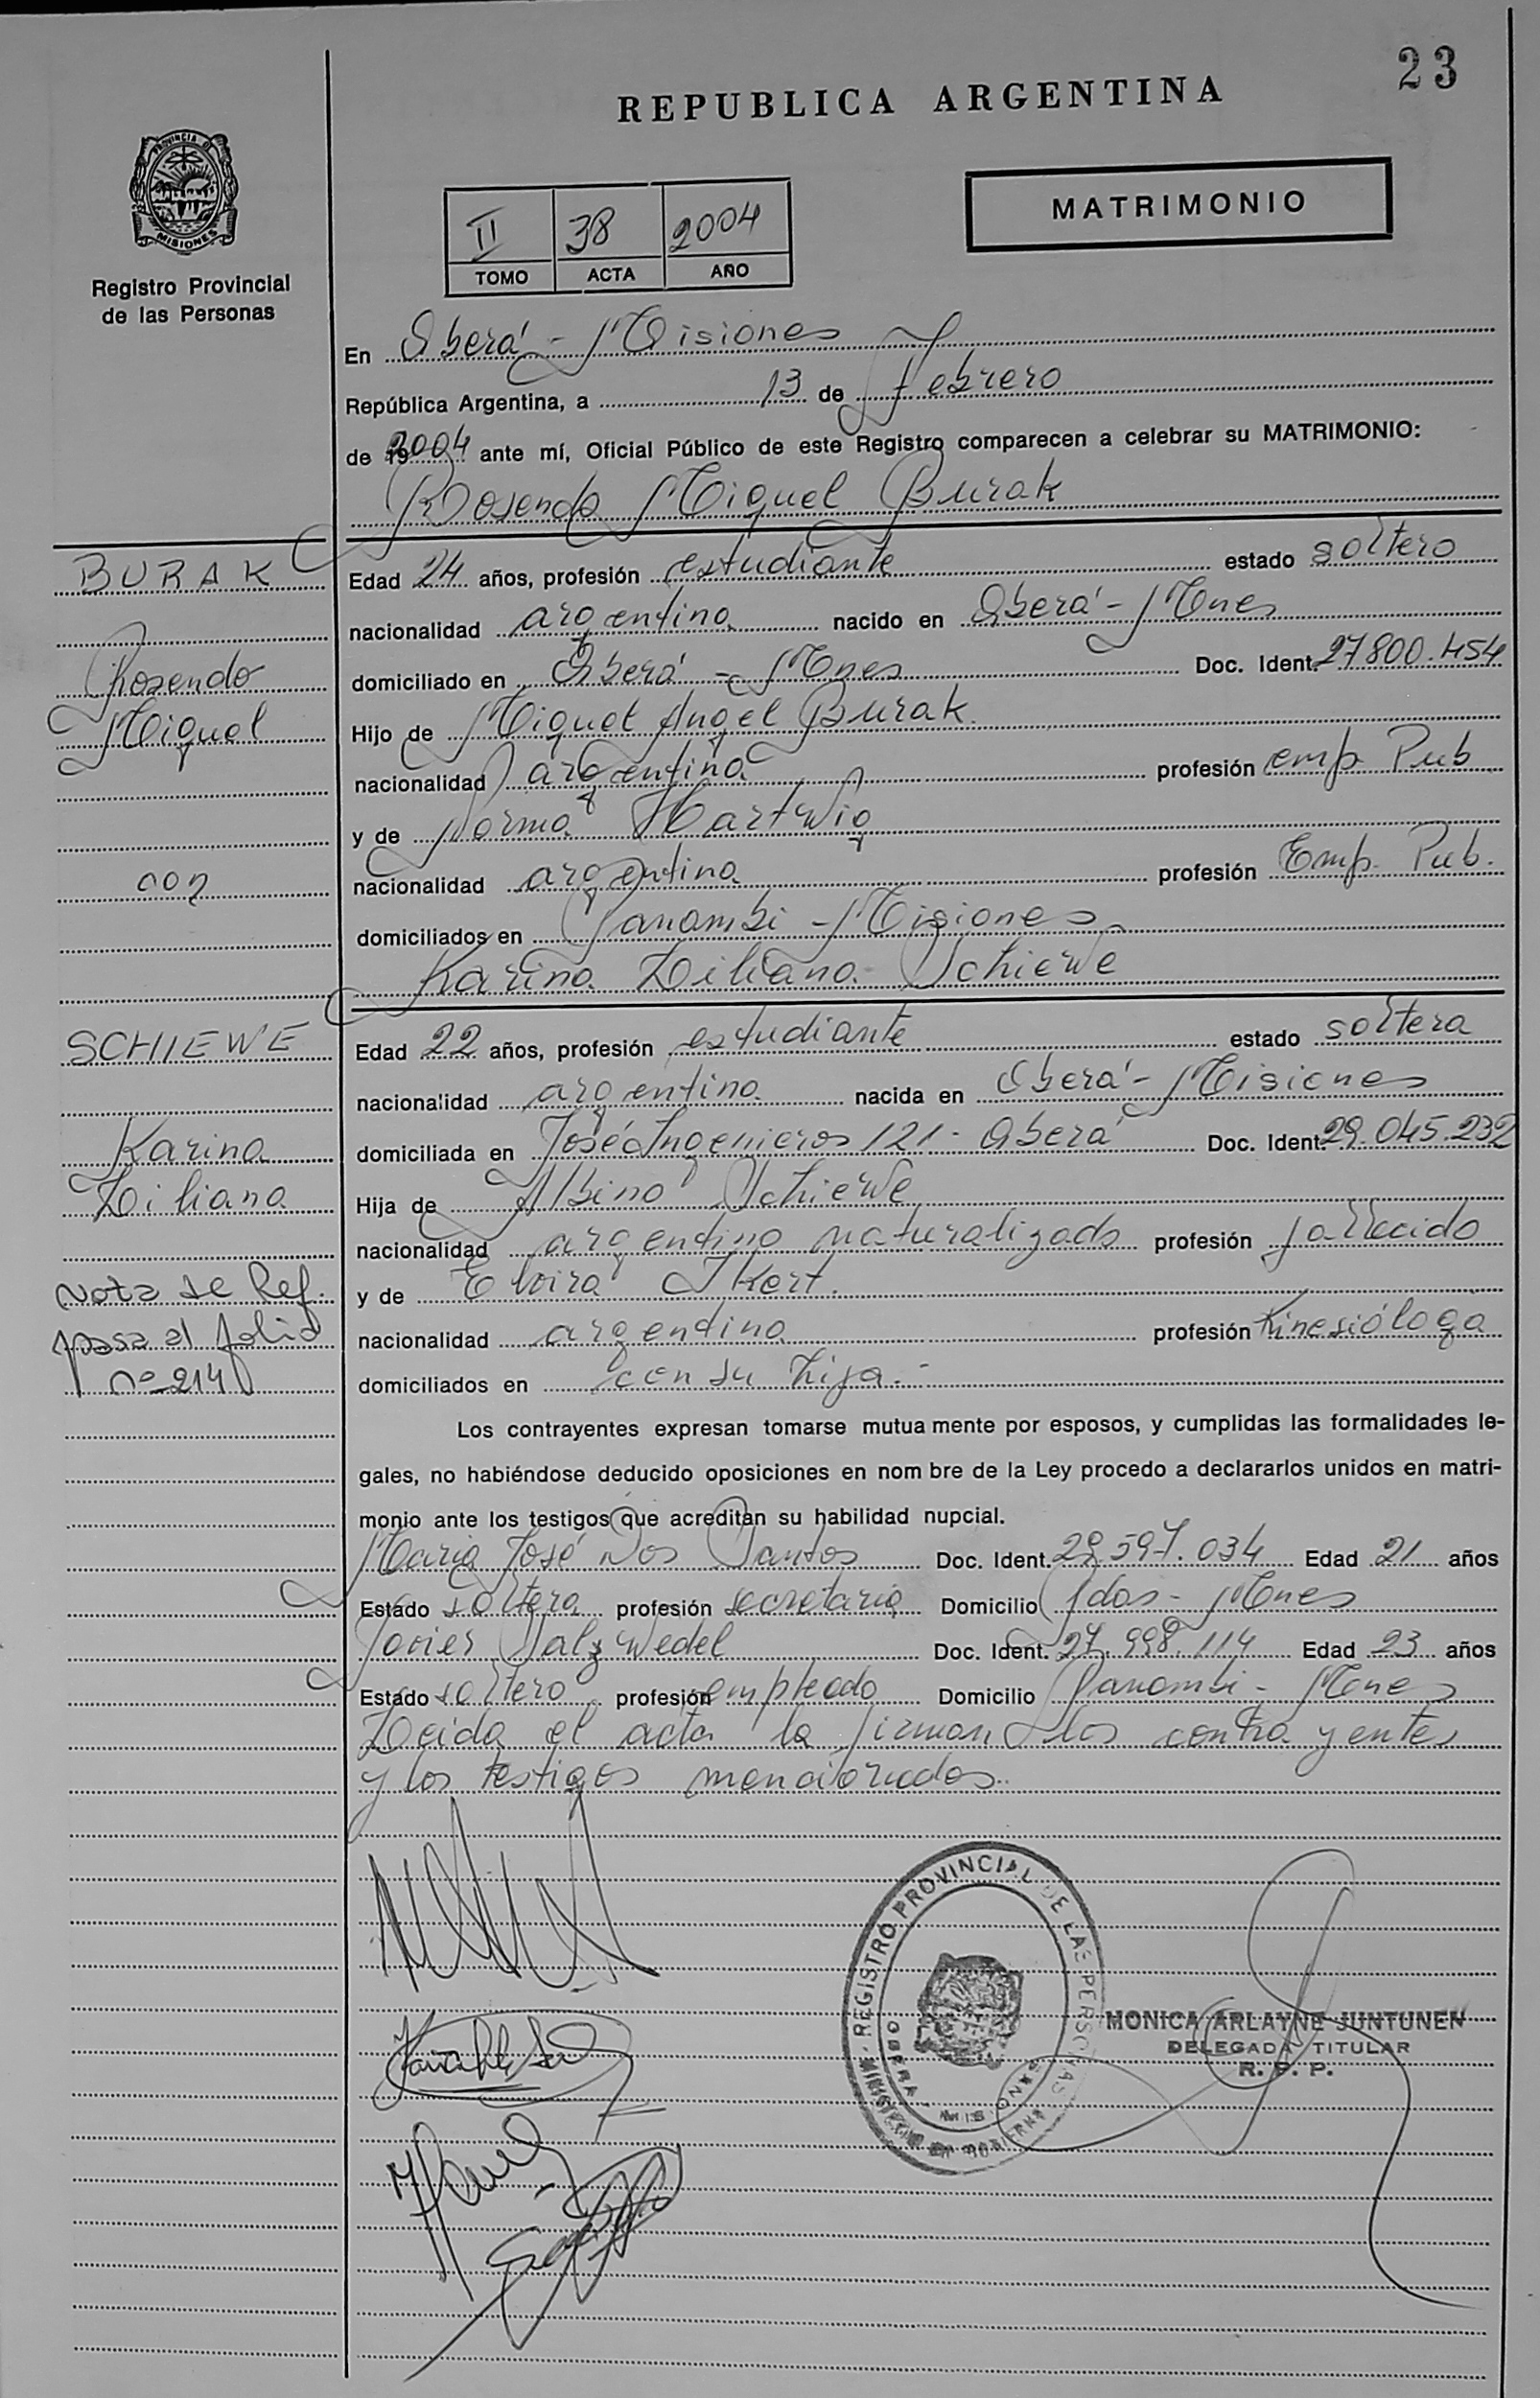 23
REPUBLICA ARGENTINA
MATRIMONIO
II 38 2004
TOMO ACTA AÑO
PROVINCIA DE
MISIONES
Registro Provincial
de las Personas
En Oberá - Misiones
República Argentina, a 13 de Febrero
de 2004 ante mí, Oficial Público de este Registro comparecen a celebrar su MATRIMONIO:
Rosendo Miguel Burak
BURAK
Rosendo
Miguel
con
Edad 24 años, profesión estudiante estado soltero
nacionalidad argentina nacido en Oberá - Mnes
domiciliado en Oberá - Mnes Doc. Ident. 27800.454
Hijo de Miguel Angel Burak
nacionalidad argentina profesión emp Pub
y de Norma Hartwig
nacionalidad argentina profesión Emp. Pub.
domiciliados en Panambi - Misiones
Karina Liliana Schiewe
SCHIEWE
Karina
Liliana
Nota de Ref.
pasa al folio
nº 214
Edad 22 años, profesión estudiante estado soltera
nacionalidad argentina nacida en Oberá - Misiones
domiciliada en José Ingenieros 121 - Oberá Doc. Ident. 29.045.232
Hija de Albino Schiewe
nacionalidad argentino naturalizado profesión fallecido
y de Elvira Ikert.
nacionalidad argentina profesión Kinesióloga
domiciliados en con su hija.-
Los contrayentes expresan tomarse mutua mente por esposos, y cumplidas las formalidades le-
gales, no habiéndose deducido oposiciones en nom bre de la Ley procedo a declararlos unidos en matri-
monio ante los testigos que acreditan su habilidad nupcial.
Maria José Dos Santos Doc. Ident. 29.597.034 Edad 21 años
Estado soltera profesión secretaria Domicilio Pdas - Mnes
Javier Salzwedel Doc. Ident. 27.998.114 Edad 23 años
Estado soltero profesión empleado Domicilio Panambi - Mnes
Leida el acta la firman los contrayentes
y los testigos mencionados.
REGISTRO PROVINCIAL DE LAS PERSONAS
OBERA
MONICA ARLAYNE JUNTUNEN
DELEGADA TITULAR
R. P. P.